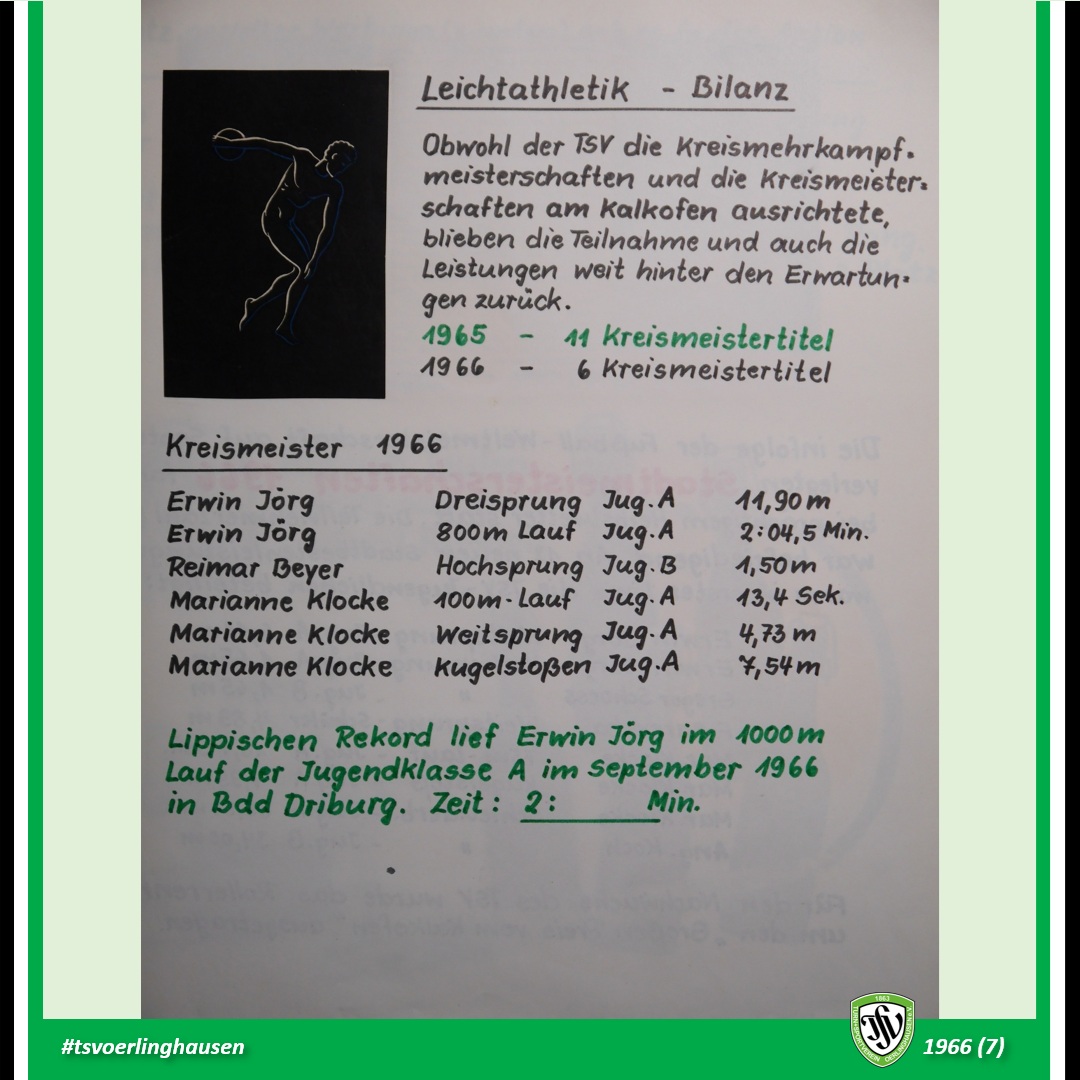 Leichtathletik - Bilanz
Obwohl der TSV die Kreismehrkampf-
meisterschaften und die Kreismeister-
schaften am Kalkofen ausrichtete,
blieben die Teilnahme und auch die
Leistungen weit hinter den Erwartun-
gen zurück.
1965 - 11 Kreismeistertitel
1966 - 6 Kreismeistertitel
Kreismeister 1966
Erwin Jörg Dreisprung Jug.A 11,90 m
Erwin Jörg 800m Lauf Jug.A 2:04,5 Min.
Reimar Beyer Hochsprung Jug.B 1,50 m
Marianne Klocke 100m-Lauf Jug.A 13,4 Sek.
Marianne Klocke Weitsprung Jug.A 4,73 m
Marianne Klocke Kugelstoßen Jug.A 7,54 m
Lippischen Rekord lief Erwin Jörg im 1000 m
Lauf der Jugendklasse A im September 1966
in Bad Driburg. Zeit: 2: Min.
1863
TSV
#tsvoerlinghausen
1966 (7)